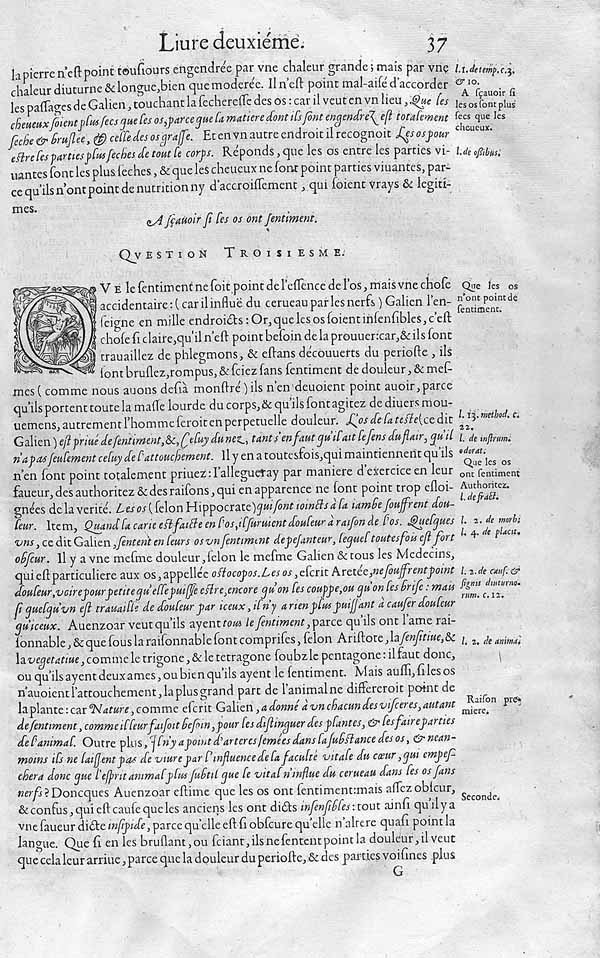 Liure deuxiéme. 37
la pierre n'eſt point touſiours engendrée par vne chaleur grande; mais par vne
chaleur diuturne & longue, bien que moderée. Il n'eſt point mal-aiſé d'accorder
les paſſages de Galien, touchant la ſechereſſe des os: car il veut en vn lieu, Que les
cheueux ſoient plus ſecs que les os, parce que la matiere dont ils ſont engendrez eſt totalement
ſeche & bruſlee, & celle des os graſſe. Et en vn autre endroit il recognoit Les os pour
eſtre les parties plus ſeches de tout le corps. Réponds, que les os entre les parties vi-
uantes ſont les plus ſeches, & que les cheueux ne ſont point parties viuantes, par-
ce qu'ils n'ont point de nutrition ny d'accroiſſement, qui ſoient vrays & legiti-
mes.
l. 1. de temp. c. 3.
& 10.
A ſçauoir ſi
les os ſont plus
ſecs que les
cheueux.
l. de oſſibus.
A ſçauoir ſi les os ont ſentiment.
QVESTION TROISIESME.
QVE le ſentiment ne ſoit point de l'eſſence de l'os, mais vne choſe
accidentaire: (car il influë du cerueau par les nerfs) Galien l'en-
ſeigne en mille endroicts: Or, que les os ſoient inſenſibles, c'eſt
choſe ſi claire, qu'il n'eſt point beſoin de la prouuer: car, & ils ſont
trauaillez de phlegmons, & eſtans découuerts du perioſte, ils
ſont bruſlez, rompus, & ſciez ſans ſentiment de douleur, & meſ-
mes (comme nous auons deſià monſtré) ils n'en deuoient point auoir, parce
qu'ils portent toute la maſſe lourde du corps, & qu'ils ſont agitez de diuers mou-
uemens, autrement l'homme ſeroit en perpetuelle douleur. L'os de la teſte (ce dit
Galien) eſt priué de ſentiment, &, Celuy du nez, tant s'en faut qu'il ait le ſens du flair, qu'il
n'a pas ſeulement celuy de l'attouchement. Il y en a toutesfois, qui maintiennent qu'ils
n'en ſont point totalement priuez: l'allegueray par maniere d'exercice en leur
faueur, des authoritez & des raiſons, qui en apparence ne ſont point trop eſloi-
gnées de la verité. Les os (ſelon Hippocrate) qui ſont ioincts à la iambe ſouffrent dou-
leur. Item, Quand la carie eſt faicte en l'os, il ſuruient douleur à raiſon de l'os. Quelques
vns, ce dit Galien, ſentent en leurs os vn ſentiment de peſanteur, lequel toutesfois eſt fort
obſcur. Il y a vne meſme douleur, ſelon le meſme Galien & tous les Medecins,
qui eſt particuliere aux os, appellée oſtocopos. Les os, eſcrit Aretée, ne ſouffrent point
douleur, voire pour petite qu'elle puiſſe eſtre, encore qu'on les couppe, ou qu'on les briſe: mais
ſi quelqu'vn eſt trauaillé de douleur par iceux, il n'y a rien plus puiſſant à cauſer douleur
qu'iceux. Auenzoar veut qu'ils ayent tous le ſentiment, parce qu'ils ont l'ame rai-
ſonnable, & que ſous la raiſonnable ſont compriſes, ſelon Ariſtote, la ſenſitiue, &
la vegetatiue, comme le trigone, & le tetragone ſoubz le pentagone: il faut donc,
ou qu'ils ayent deux ames, ou bien qu'ils ayent le ſentiment. Mais auſſi, ſi les os
n'auoient l'attouchement, la plus grand part de l'animal ne differeroit point de
la plante: car Nature, comme eſcrit Galien, a donné à vn chacun des viſceres, autant
de ſentiment, comme il leur faiſoit beſoin, pour les diſtinguer des plantes, & les faire parties
de l'animal. Outre plus, Il n'y a point d'arteres ſemées dans la ſubſtance des os, & nean-
moins ils ne laiſſent pas de viure par l'influence de la faculté vitale du cœur, qui empeſ-
chera donc que l'eſprit animal plus ſubtil que le vital n'influe du cerueau dans les os ſans
nerfs? Doncques Auenzoar eſtime que les os ont ſentiment: mais aſſez obſcur,
& confus, qui eſt cauſe que les anciens les ont dicts inſenſibles: tout ainſi qu'il y a
vne ſaueur dicte inſipide, parce qu'elle eſt ſi obſcure qu'elle n'altere quaſi point la
langue. Que ſi en les bruſlant, ou ſciant, ils ne ſentent point la douleur, il veut
que cela leur arriue, parce que la douleur du perioſte, & des parties voiſines plus
G
Que les os
n'ont point de
ſentiment.
l. 13. method. c.
22.
l. de inſtrum.
odorat.
Que les os
ont ſentiment
Authoritez.
l. de fract.
l. 2. de morbi
l. 4. de placit.
l. 2. de cauſ. &
ſignis diuturno-
rum. c. 12.
l. 2. de anima
Raiſon pre
miere.
Seconde.